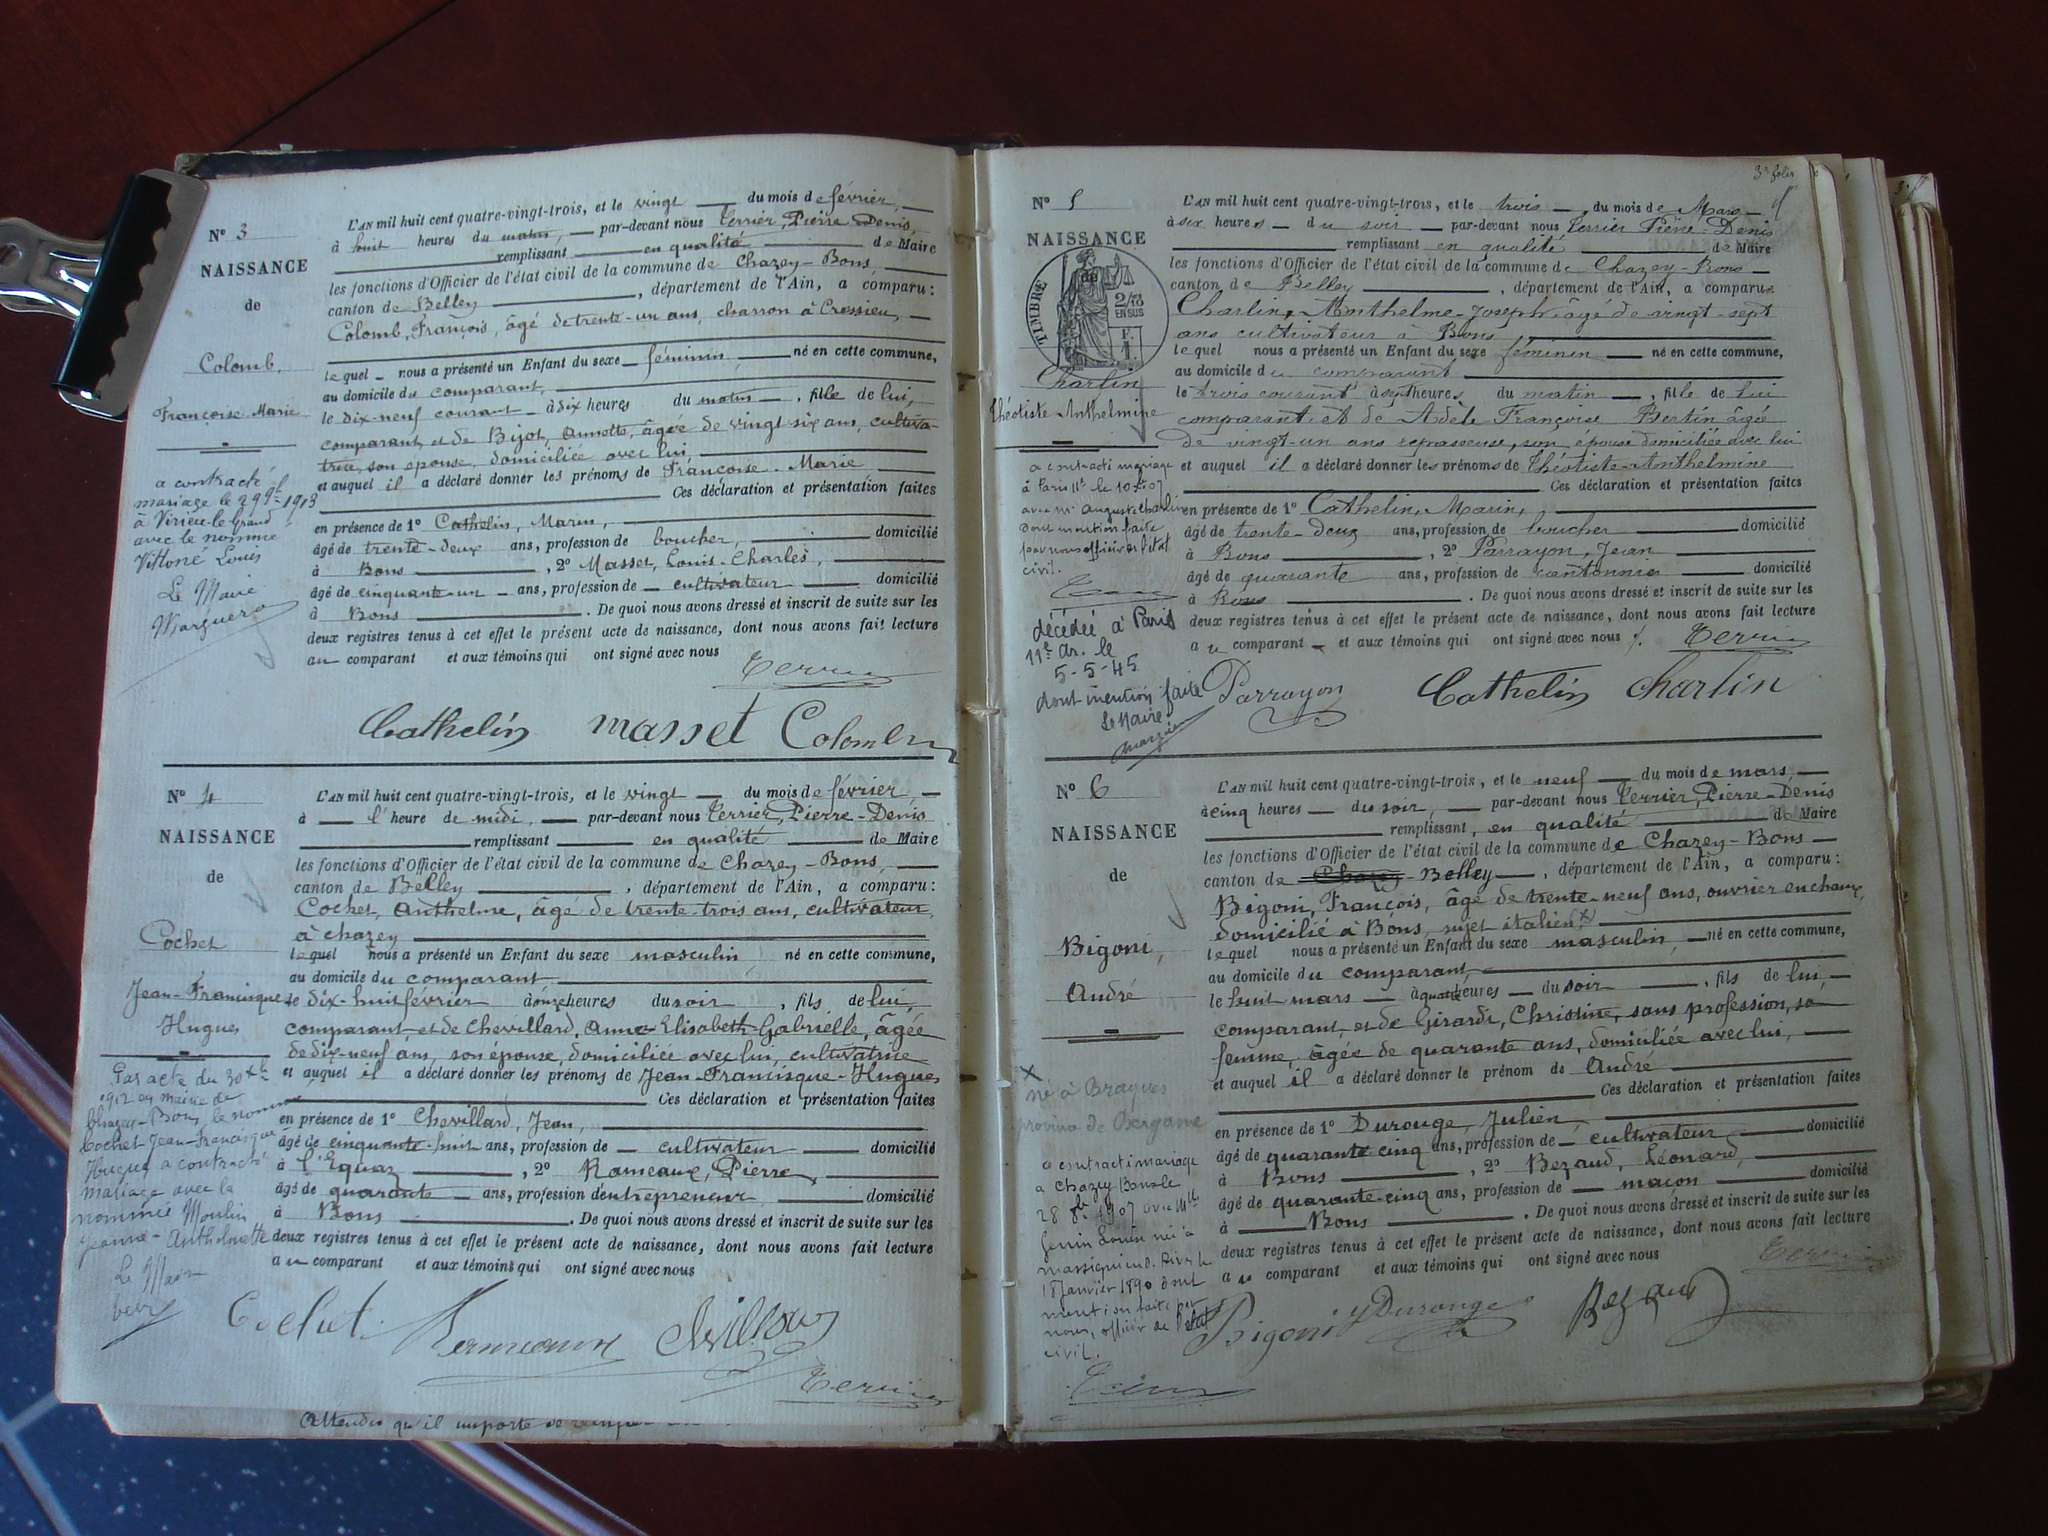 N° 3
NAISSANCE
de
Colomb.
Françoise-Marie
a contracté
mariage le 29 1913
à Virieu-le-Grand
avec le nommé
Vittoné Louis
Le Maire
L'AN mil huit cent quatre-vingt-trois, et le vingt du mois de février,
à huit heures du matin, par-devant nous Terrier, Pierre-Denis,
remplissant en qualité de Maire
les fonctions d'Officier de l'état civil de la commune de Chazey-Bons
canton de Belley, département de l'Ain, a comparu:
Colomb, François, âgé de trente-un ans, charron à Cressieu,
lequel nous a présenté un Enfant du sexe féminin né en cette commune,
au domicile du comparant,
le dix-neuf courant à dix heures du matin, fille de lui,
comparant et de Bijot, Annette, âgée de vingt-six ans, cultiva-
trice, son épouse, domiciliée avec lui,
et auquel il a déclaré donner les prénoms de Françoise-Marie
Ces déclaration et présentation faites
en présence de 1° Cathelin, Marin,
âgé de trente-deux ans, profession de boucher, domicilié
à Bons, 2° Masset, Louis-Charles,
âgé de cinquante-un ans, profession de cultivateur domicilié
à Bons. De quoi nous avons dressé et inscrit de suite sur les
deux registres tenus à cet effet le présent acte de naissance, dont nous avons fait lecture
au comparant et aux témoins qui ont signé avec nous
Cathelin masset Colomb
N° 4
NAISSANCE
de
Cochet
Jean-Francisque
Hugues
Par acte du 30
1912 en mairie de
Chazey-Bons, le nommé
Cochet Jean-Francisque
Hugues a contracté
mariage avec la
nommée Moulin
Jeanne-Anthelmette
Le Maire
L'AN mil huit cent quatre-vingt-trois, et le vingt du mois de février
à l'heure de midi, par-devant nous Terrier, Pierre-Denis
remplissant en qualité de Maire
les fonctions d'Officier de l'état civil de la commune de Chazey-Bons,
canton de Belley, département de l'Ain, a comparu:
Cochet, Anthelme, âgé de trente-trois ans, cultivateur,
à Chazey
lequel nous a présenté un Enfant du sexe masculin né en cette commune,
au domicile du comparant
le dix-huit février à onze heures du soir, fils de lui,
comparant et de Chevillard, Anne-Elisabeth-Gabrielle, âgée
de dix-neuf ans, son épouse, domiciliée avec lui, cultivatrice
et auquel il a déclaré donner les prénoms de Jean-Francisque-Hugues
Ces déclaration et présentation faites
en présence de 1° Chevillard, Jean,
âgé de cinquante-huit ans, profession de cultivateur domicilié
à l'Equaz, 2° Rameaux, Pierre,
âgé de quarante ans, profession d'entrepreneur domicilié
à Bons. De quoi nous avons dressé et inscrit de suite sur les
deux registres tenus à cet effet le présent acte de naissance, dont nous avons fait lecture
au comparant et aux témoins qui ont signé avec nous
Cochet
Attendu qu'il importe de
3e folio
N° 5
NAISSANCE
de
TIMBRE
2/10
EN SUS
F.
1.
Charlin
Théotiste-Anthelmine
a contracté mariage
à Paris 11e le
avec Mr Auguste Charlin
dont mention faite
par nous officier de l'état
civil.
décédée à Paris
11e Ar. le
5-5-45
dont mention faite
Le Maire
L'AN mil huit cent quatre-vingt-trois, et le trois du mois de Mars
à six heures du soir par-devant nous Terrier Pierre-Denis
remplissant en qualité de Maire
les fonctions d'Officier de l'état civil de la commune de Chazey-Bons
canton de Belley, département de l'Ain, a comparu:
Charlin, Anthelme-Joseph, âgé de vingt-sept
ans cultivateur à Bons
lequel nous a présenté un Enfant du sexe féminin né en cette commune,
au domicile du comparant
le trois courant à sept heures du matin, fille de lui
comparant et de Adèle Françoise Bertin âgée
de vingt-un ans repasseuse, son épouse domiciliée avec lui
et auquel il a déclaré donner les prénoms de Théotiste-Anthelmine
Ces déclaration et présentation faites
en présence de 1° Cathelin, Marin,
âgé de trente-deux ans, profession de boucher domicilié
à Bons, 2° Parrayon, Jean
âgé de quarante ans, profession de cantonnier domicilié
à Bons. De quoi nous avons dressé et inscrit de suite sur les
deux registres tenus à cet effet le présent acte de naissance, dont nous avons fait lecture
au comparant et aux témoins qui ont signé avec nous
Parrayon Cathelin Charlin
N° 6
NAISSANCE
de
Bigoni,
André
né à
province de Bergame
a contracté mariage
à Chazey-Bons le
28 1907 avec Mlle
Louise née à
18 Janvier 1890 dont
mention faite par
nous, officier de l'état
civil.
L'AN mil huit cent quatre-vingt-trois, et le neuf du mois de mars,
à cinq heures du soir, par-devant nous Terrier, Pierre-Denis
remplissant, en qualité de Maire
les fonctions d'Officier de l'état civil de la commune de Chazey-Bons
canton de Chazey-Belley, département de l'Ain, a comparu:
Bigoni, François, âgé de trente-neuf ans, ouvrier en chaux,
domicilié à Bons, sujet italien (x)
lequel nous a présenté un Enfant du sexe masculin, né en cette commune,
au domicile du comparant,
le huit mars à quatre heures du soir, fils de lui,
comparant, et de Girardi, Christine, sans profession, sa
femme, âgée de quarante ans, domiciliée avec lui,
et auquel il a déclaré donner le prénom de André
Ces déclaration et présentation faites
en présence de 1° Durouge, Julien,
âgé de quarante cinq ans, profession de cultivateur domicilié
à Bons, 2° Bezaud, Léonard,
âgé de quarante-cinq ans, profession de maçon domicilié
à Bons. De quoi nous avons dressé et inscrit de suite sur les
deux registres tenus à cet effet le présent acte de naissance, dont nous avons fait lecture
au comparant et aux témoins qui ont signé avec nous
Bigoni Durouge Bezaud